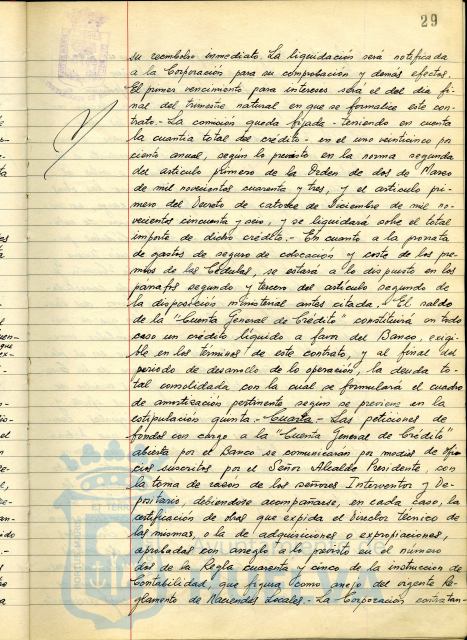 29
su reembolso inmediato. La liquidación será notificada
a la Corporación para su comprobación y demás efectos.
El primer vencimiento para intereses será el del día fi-
nal del trimestre natural en que se formalice este con-
trato.- La comisión queda fijada - teniendo en cuenta
la cuantía total del crédito - en el uno veinticinco por
ciento anual, según lo previsto en la norma segunda
del artículo primero de la Orden de dos de Marzo
de mil novecientos cuarenta y tres, y el artículo pri-
mero del Decreto de catorce de Diciembre de mil no-
vecientos cincuenta y seis, y se liquidará sobre el total
importe de dicho crédito.- En cuanto a la prorrata
de gastos de seguro de colocación y coste de los pre-
mios de las Cédulas, se estará a lo dispuesto en los
párrafos segundo y tercero del artículo segundo de
la disposición ministerial antes citada. El saldo
de la "Cuenta General de Crédito" constituirá en todo
caso un crédito líquido a favor del Banco, exigi-
ble en los términos de este contrato, y al final del
período de desarrollo de la operación, la deuda to-
tal consolidada con la cual se formulará el cuadro
de amortización pertinente según se previene en la
estipulación quinta.- Cuarta.- Las peticiones de
fondos con cargo a la "Cuenta General de Crédito"
abierta por el Banco se comunicarán por medio de ofi-
cios suscritos por el Señor Alcalde Presidente, con
la toma de razón de los señores Interventor y De-
positario, debiendose acompañarse, en cada caso, la
certificación de obras que expida el Director técnico de
las mismas, o la de adquisiciones o expropiaciones,
aprobadas con arreglo a lo previsto en el número
dos de la Regla cuarenta y cinco de la instrucción de
Contabilidad, que figura como anejo del vigente Re-
glamento de Haciendas Locales.- La Corporación contratan-